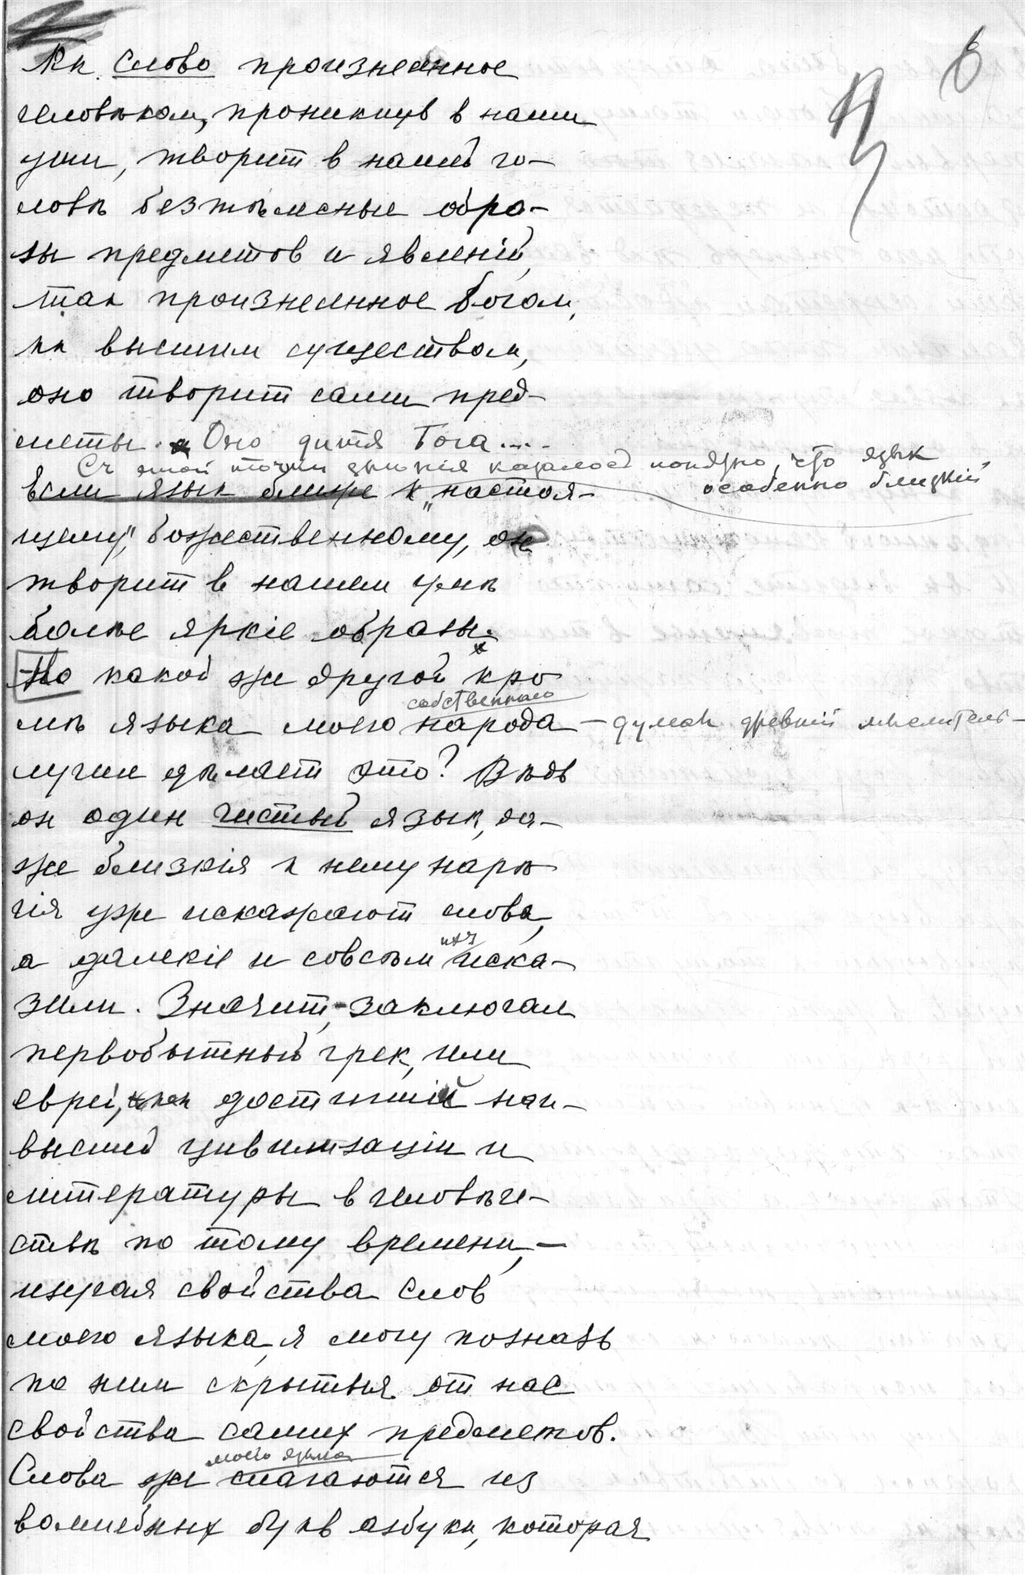 6
Как Слово произнесенное
человѣком, проникнув в наши
уши, творит в нашей го-
ловѣ безтѣлесные обра-
зы предметов и явленій,
так произнесенное богом,
как высшим существом,
оно творит сами пред-
меты. Оно дитя Бога....
Съ этой точки зрѣнія казалось понятно, что язык
особенно близкій
Если язык ближе к „настоя-
щему", божественному, он
творит в нашем умѣ
болѣе яркіе образы.
Но какой же другой кро
собственнаго
мѣ языка моего народа – думал древній мыслитель –
лучше дѣлает это? Вѣдь
он один чистый язык, да-
же близкія к нему нарѣ
чія уже искажают слова,
их
а далекіе и совсѣм иска-
зили. Значит, – заключал
первобытный грек, или
еврей, достигшій наи-
высшей цивилизаціи и
литературы в человѣче-
ствѣ по тому времени, –
изучая свойства Слов
моего языка, я могу познать
по ним скрытыя от нас
свойства самих предметов.
моего языка
Слова же слагаются из
волшебных букв азбуки, которая